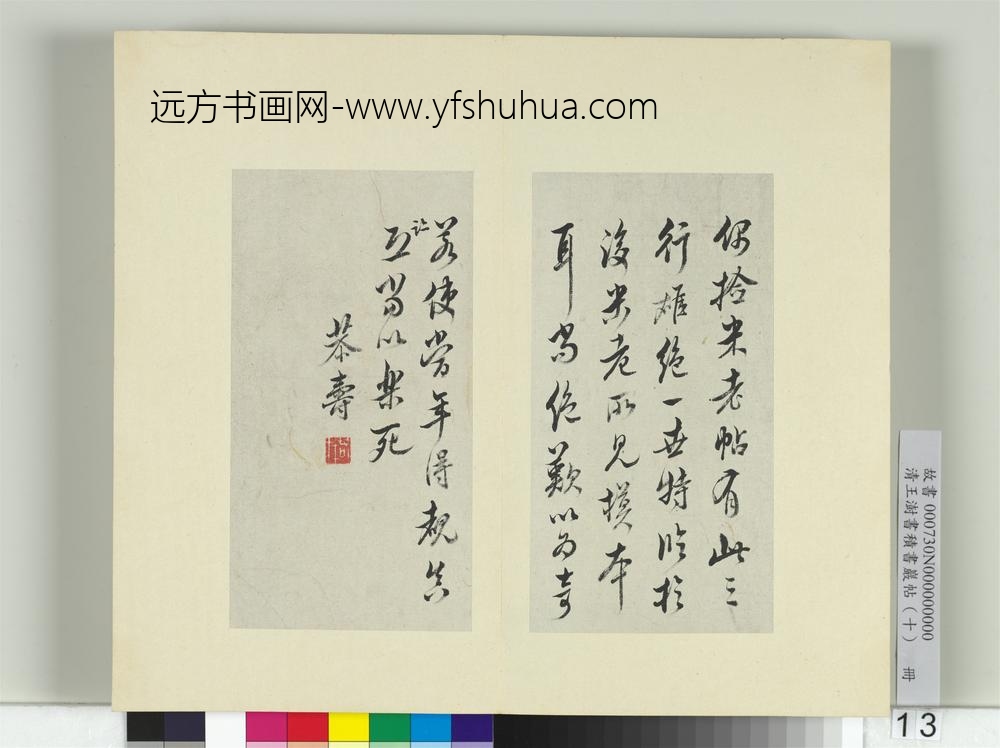 远方书画网-www.yfshuhua.com
偶拾米老帖有此三
行雄絕一世特臨於
後米老所見摸本
耳當絕歎以為奇
若使當年得覩真
當以樂死
恭壽
故書 000730N000000000
清王澍書積書巖帖(十) 冊
13